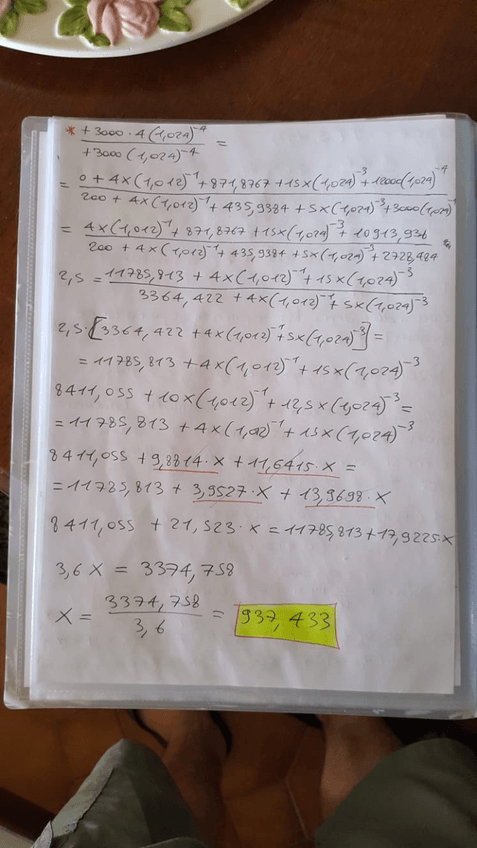 * + 3000 · 4 (1,024)^-4 =
+ 3000 (1,024)^-4
= 0 + 4x(1,012)^-1 + 871,8767 + 15x(1,024)^-3 + 12000(1,024)^-4
200 + 4x(1,012)^-1 + 435,9384 + 5x(1,024)^-3 + 3000(1,024)^-4
= 4x(1,012)^-1 + 871,8767 + 15x(1,024)^-3 + 10913,936
200 + 4x(1,012)^-1 + 435,9384 + 5x(1,024)^-3 + 2728,484
2,5 = 11785,813 + 4x(1,012)^-1 + 15x(1,024)^-3
3364,422 + 4x(1,012)^-1 + 5x(1,024)^-3
2,5·[3364,422 + 4x(1,012)^-1 + 5x(1,024)^-3] =
= 11785,813 + 4x(1,012)^-1 + 15x(1,024)^-3
8411,055 + 10x(1,012)^-1 + 12,5x(1,024)^-3 =
= 11785,813 + 4x(1,012)^-1 + 15x(1,024)^-3
8411,055 + 9,8814·x + 11,6415·x =
= 11785,813 + 3,9527·x + 13,9698·x
8411,055 + 21,523·x = 11785,813 + 17,9225·x
3,6x = 3374,758
x = 3374,758 = 937,433
3,6